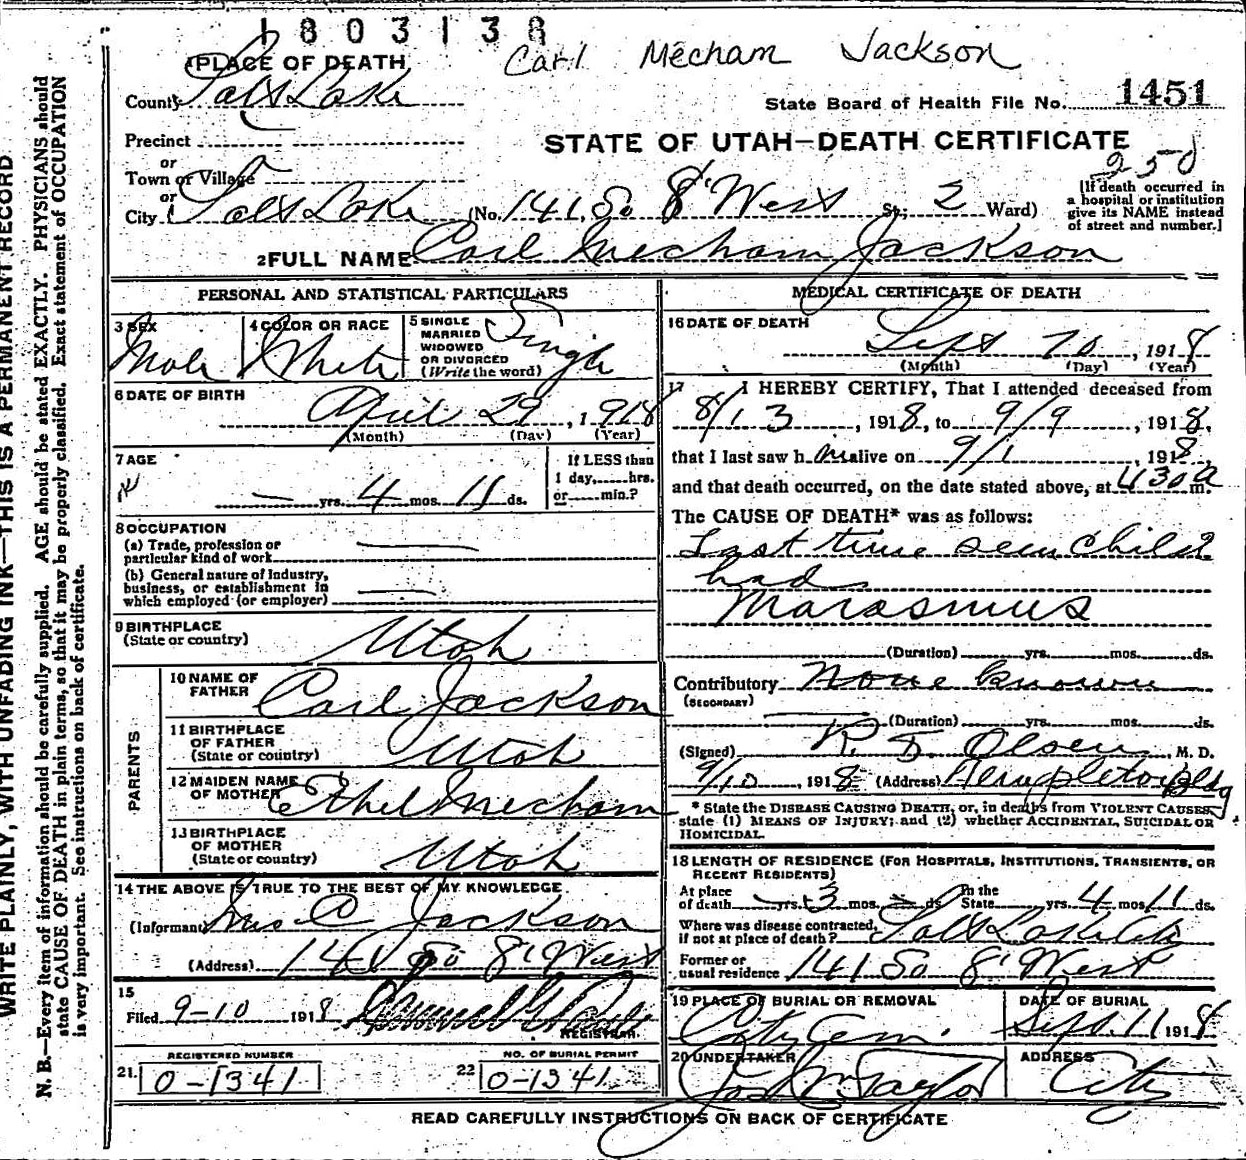 1803138
Carl Mecham Jackson
PLACE OF DEATH
County Salt Lake
State Board of Health File No. 1451
Precinct
STATE OF UTAH—DEATH CERTIFICATE
or
Town or Village
250
or
City Salt Lake (No. 141 So 8' West St; 2 Ward)
[If death occurred in
a hospital or institution
give its NAME instead
of street and number.]
2 FULL NAME Carl Mecham Jackson
PERSONAL AND STATISTICAL PARTICULARS
3 SEX Male
4 COLOR OR RACE White
5 SINGLE
MARRIED
WIDOWED
OR DIVORCED
(Write the word) Single
6 DATE OF BIRTH
April 29, 1918
(Month) (Day) (Year)
7 AGE
— yrs. 4 mos. 11 ds.
If LESS than
1 day, hrs.
or min.?
8 OCCUPATION
(a) Trade, profession or
particular kind of work
(b) General nature of Industry,
business, or establishment in
which employed (or employer)
9 BIRTHPLACE
(State or country) Utah
PARENTS
10 NAME OF
FATHER Carl Jackson
11 BIRTHPLACE
OF FATHER
(State or country) Utah
12 MAIDEN NAME
OF MOTHER Ethel Mecham
13 BIRTHPLACE
OF MOTHER
(State or country) Utah
14 THE ABOVE IS TRUE TO THE BEST OF MY KNOWLEDGE
(Informant) Mrs C Jackson
(Address) 141 So 8' West
15
Filed 9-10 1918
REGISTRAR
REGISTERED NUMBER
21. 0-1341
NO. OF BURIAL PERMIT
22 0-1341
MEDICAL CERTIFICATE OF DEATH
16 DATE OF DEATH
Sept 10, 1918
(Month) (Day) (Year)
17 I HEREBY CERTIFY, That I attended deceased from
8/13, 1918, to 9/9, 1918,
that I last saw him alive on 9/1, 1918,
and that death occurred, on the date stated above, at 430a m.
The CAUSE OF DEATH* was as follows:
Last time seen child
had
Marasmus
(Duration) yrs. mos. ds.
Contributory None known
(SECONDARY)
(Duration) yrs. mos. ds.
(Signed) R. T. Olsen, M. D.
9/10, 1918 (Address) Templeton Bldg
* State the DISEASE CAUSING DEATH, or, in deaths from VIOLENT CAUSES,
state (1) MEANS OF INJURY; and (2) whether ACCIDENTAL, SUICIDAL OR
HOMICIDAL.
18 LENGTH OF RESIDENCE (FOR HOSPITALS, INSTITUTIONS, TRANSIENTS, OR
RECENT RESIDENTS)
At place
of death — yrs. 3 mos. — ds.
In the
State yrs. 4 mos. 11 ds.
Where was disease contracted,
if not at place of death? Salt Lake City
Former or
usual residence 141 So 8' West
19 PLACE OF BURIAL OR REMOVAL
City Cem.
DATE OF BURIAL
Sept. 11 1918
20 UNDERTAKER
Jos Wm Taylor
ADDRESS
City
READ CAREFULLY INSTRUCTIONS ON BACK OF CERTIFICATE
WRITE PLAINLY, WITH UNFADING INK—THIS IS A PERMANENT RECORD
N. B.—Every item of information should be carefully supplied. AGE should be stated EXACTLY. PHYSICIANS should
state CAUSE OF DEATH in plain terms, so that it may be properly classified. Exact statement of OCCUPATION
is very important. See instructions on back of certificate.